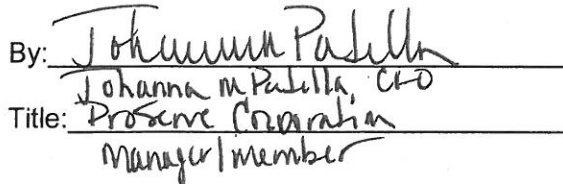 By: Johanna Padilla
Johanna M Padilla, CFO
Title: ProServe Corporation
Manager/member